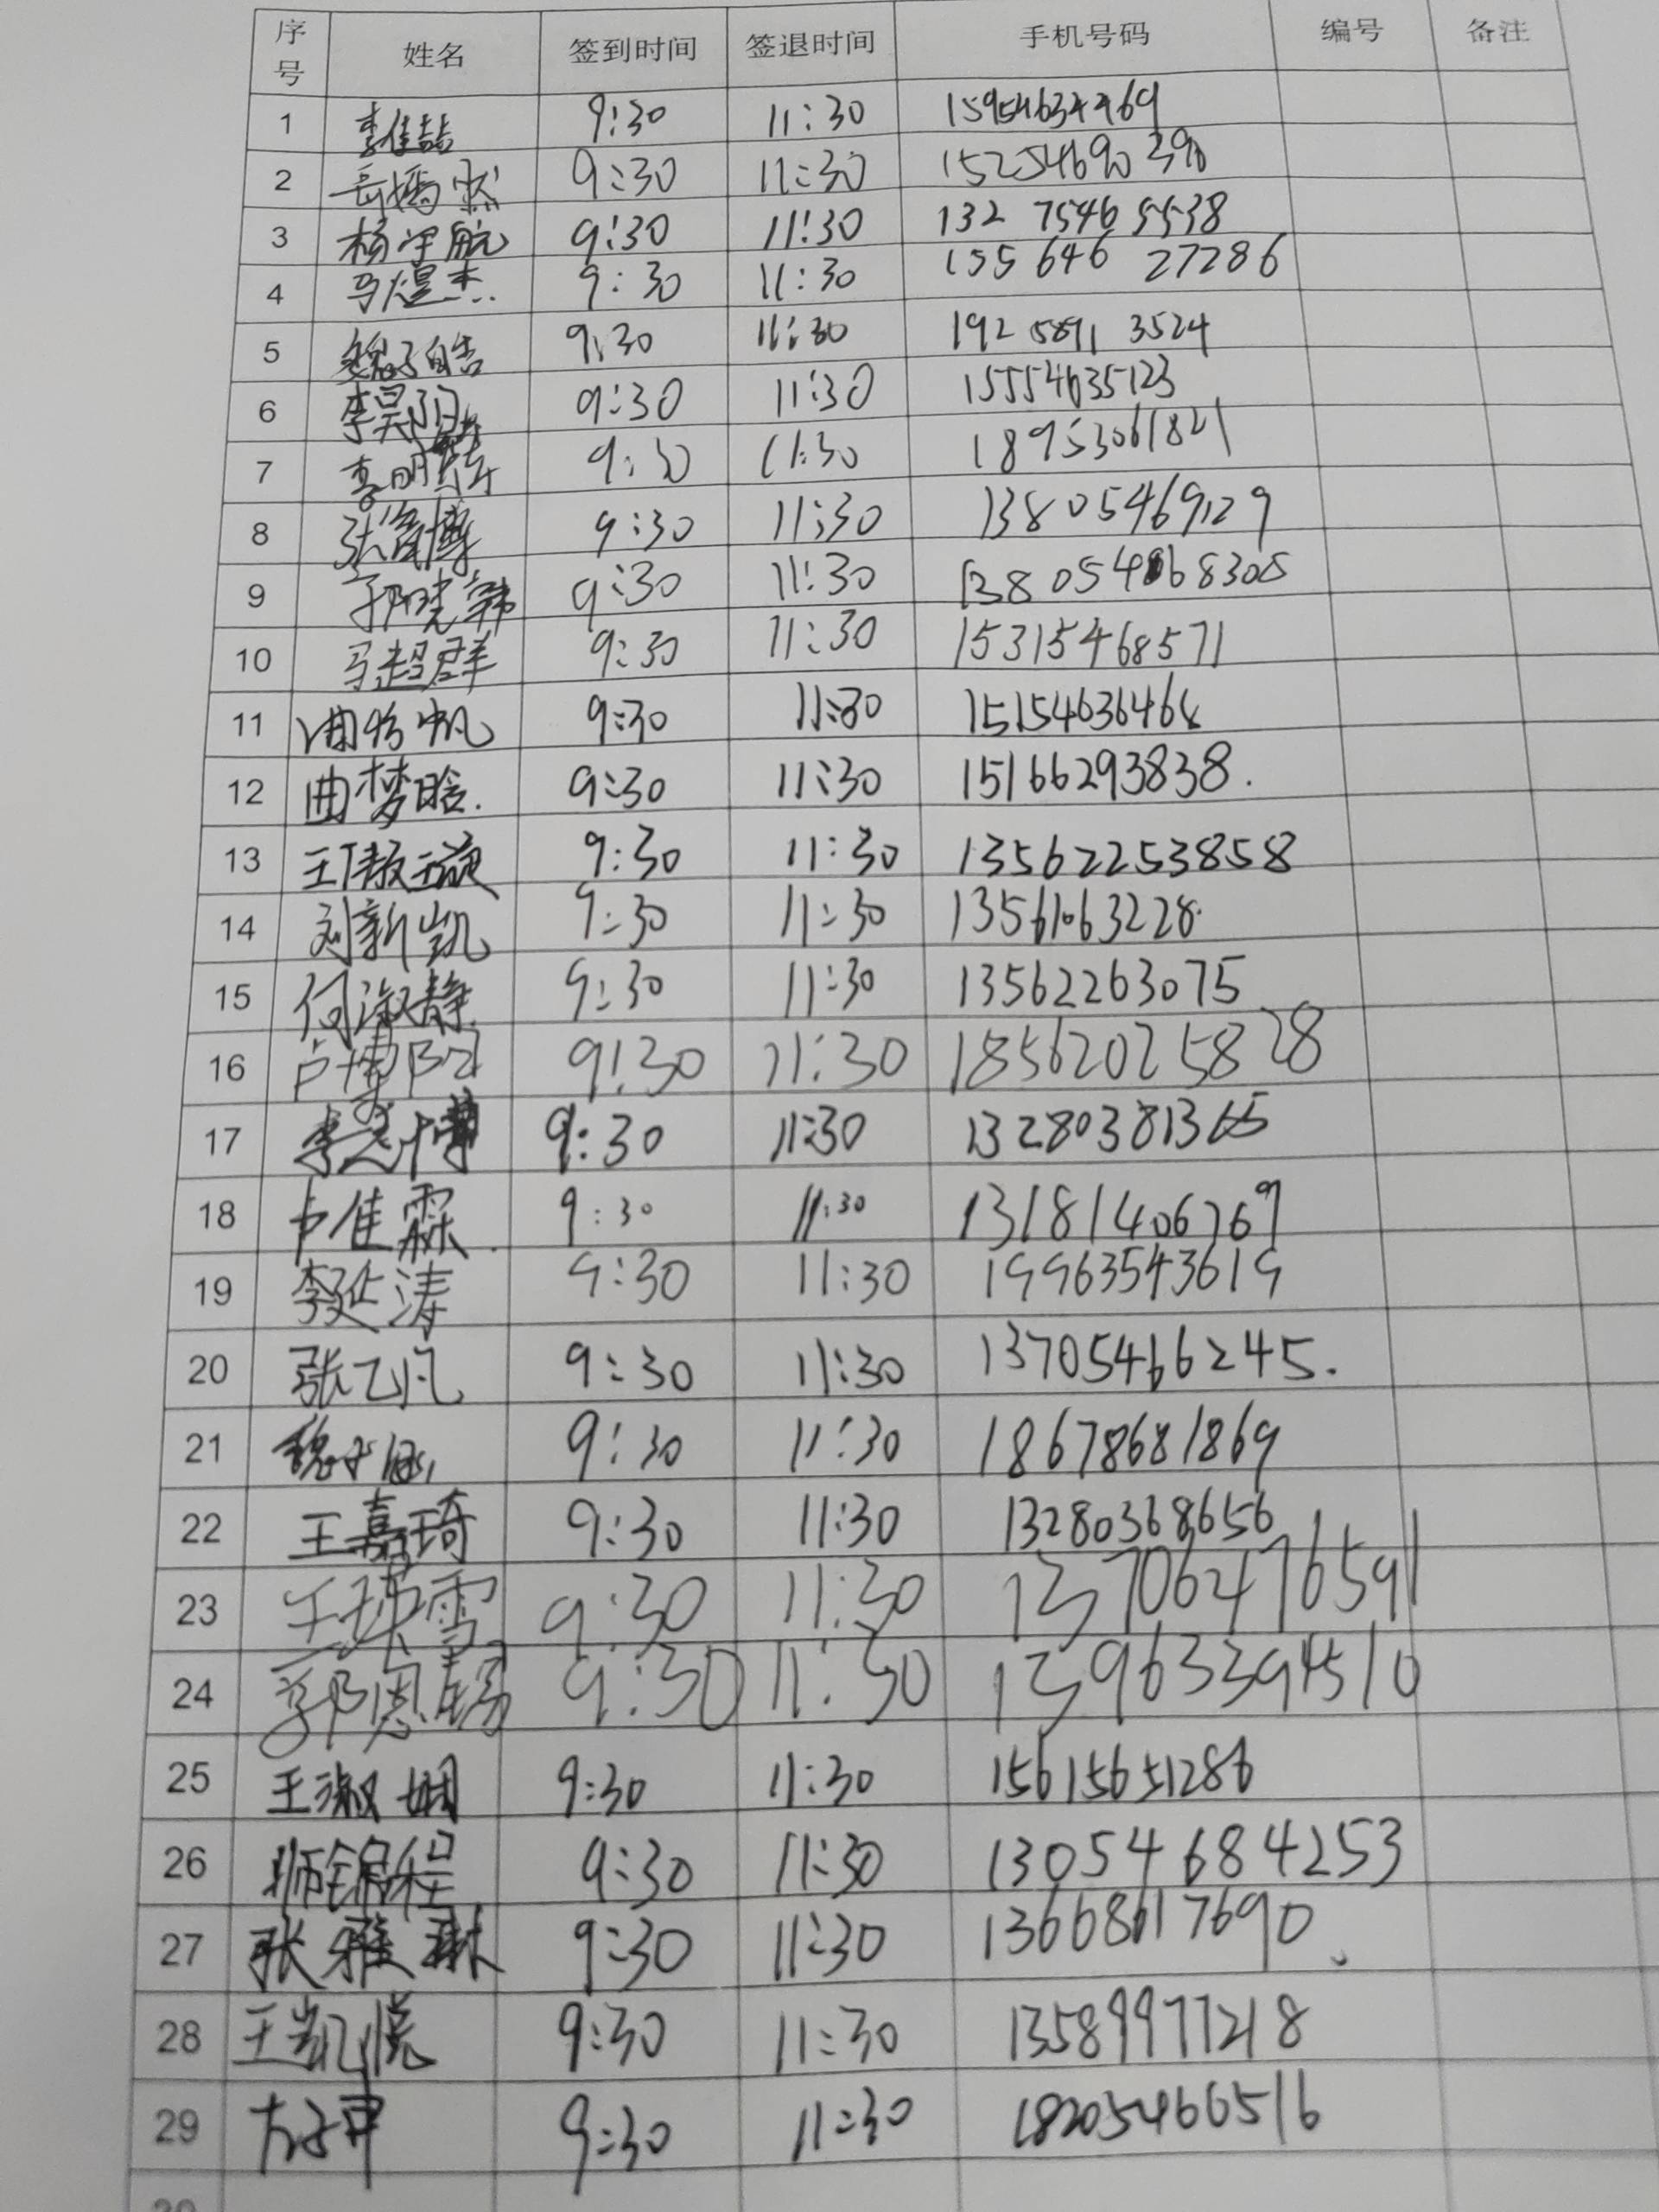 序号 姓名 签到时间 签退时间 手机号码 编号 备注
1 李佳喆 9:30 11:30
2 9:30 11:30 15254690390
3 杨宇航 9:30 11:30 132 7546 5538
4 马煜杰 9:30 11:30 155 646 27286
5 魏子皓 9:30 11:30 192 5891 3524
6 李昊阳 9:30 11:30 15554635123
7 李明 9:30 11:30 18953061821
8 张 博 9:30 11:30 13805469129
9 郭晓韩 9:30 11:30
10 马超群 9:30 11:30 15315468571
11 9:30 11:30
12 曲梦晗. 9:30 11:30 15166293838.
13 王傲璇 9:30 11:30 135622553858
14 刘新凯 9:30 11:30 13561063228.
15 何淑静 9:30 11:30 13562263075
16 卢博阳 9:30 11:30 18562025828
17 李志博 9:30 11:30 13280381365
18 卢佳霖. 9:30 11:30 13181406769
19 李延涛 9:30 11:30 19963543619
20 张乙凡 9:30 11:30 13705466245.
21 魏子涵 9:30 11:30 18678681869
22 王嘉琦 9:30 11:30 13280368656
23 王 雪 9:30 11:30 13706476591
24 郭恩锡 9:30 11:30 13963394510
25 王淑娴 9:30 11:30 15615651286
26 师锦程 9:30 11:30 13054684253
27 张雅琳 9:30 11:30 13668617690
28 王凯悦 9:30 11:30 13589977218
29 9:30 11:30 18205466516